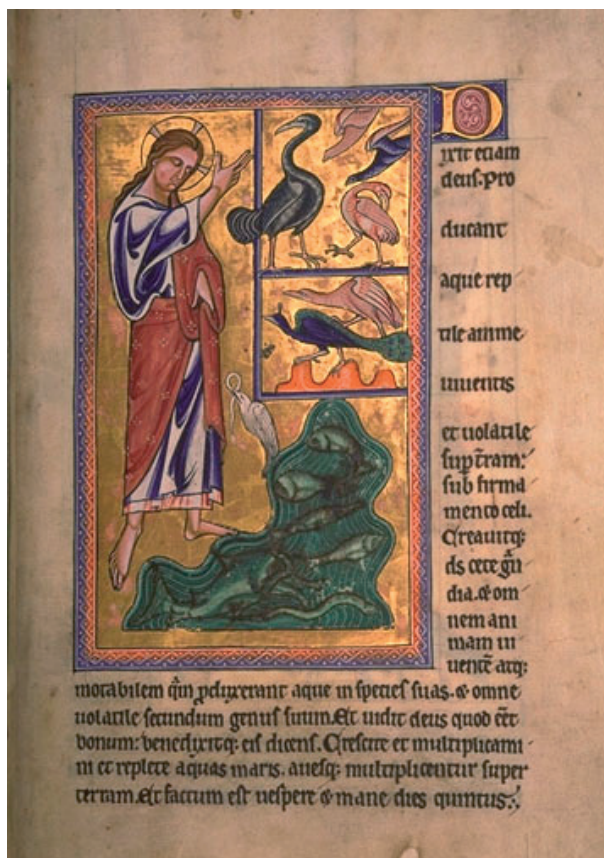 D
ixit etiam
deus. Pro
ducant
aque rep
tile anime
uiuentis
et uolatile
sup̄ t̄ram:
sub firma
mento celi.
Creauitq;
ds cete g̃n
dia. & om
nem ani
mam ui
uentē atq;
motabilem q̄m ꝓduxerant aque in species suas. & omne
uolatile secundum genus suum. Et uidit deus quod eēt
bonum: benedixitq; eis dicens. Crescite et multiplicami
ni et replete aquas maris. auesq; multiplicentur super
terram. Et factum est uespere & mane dies quintus.